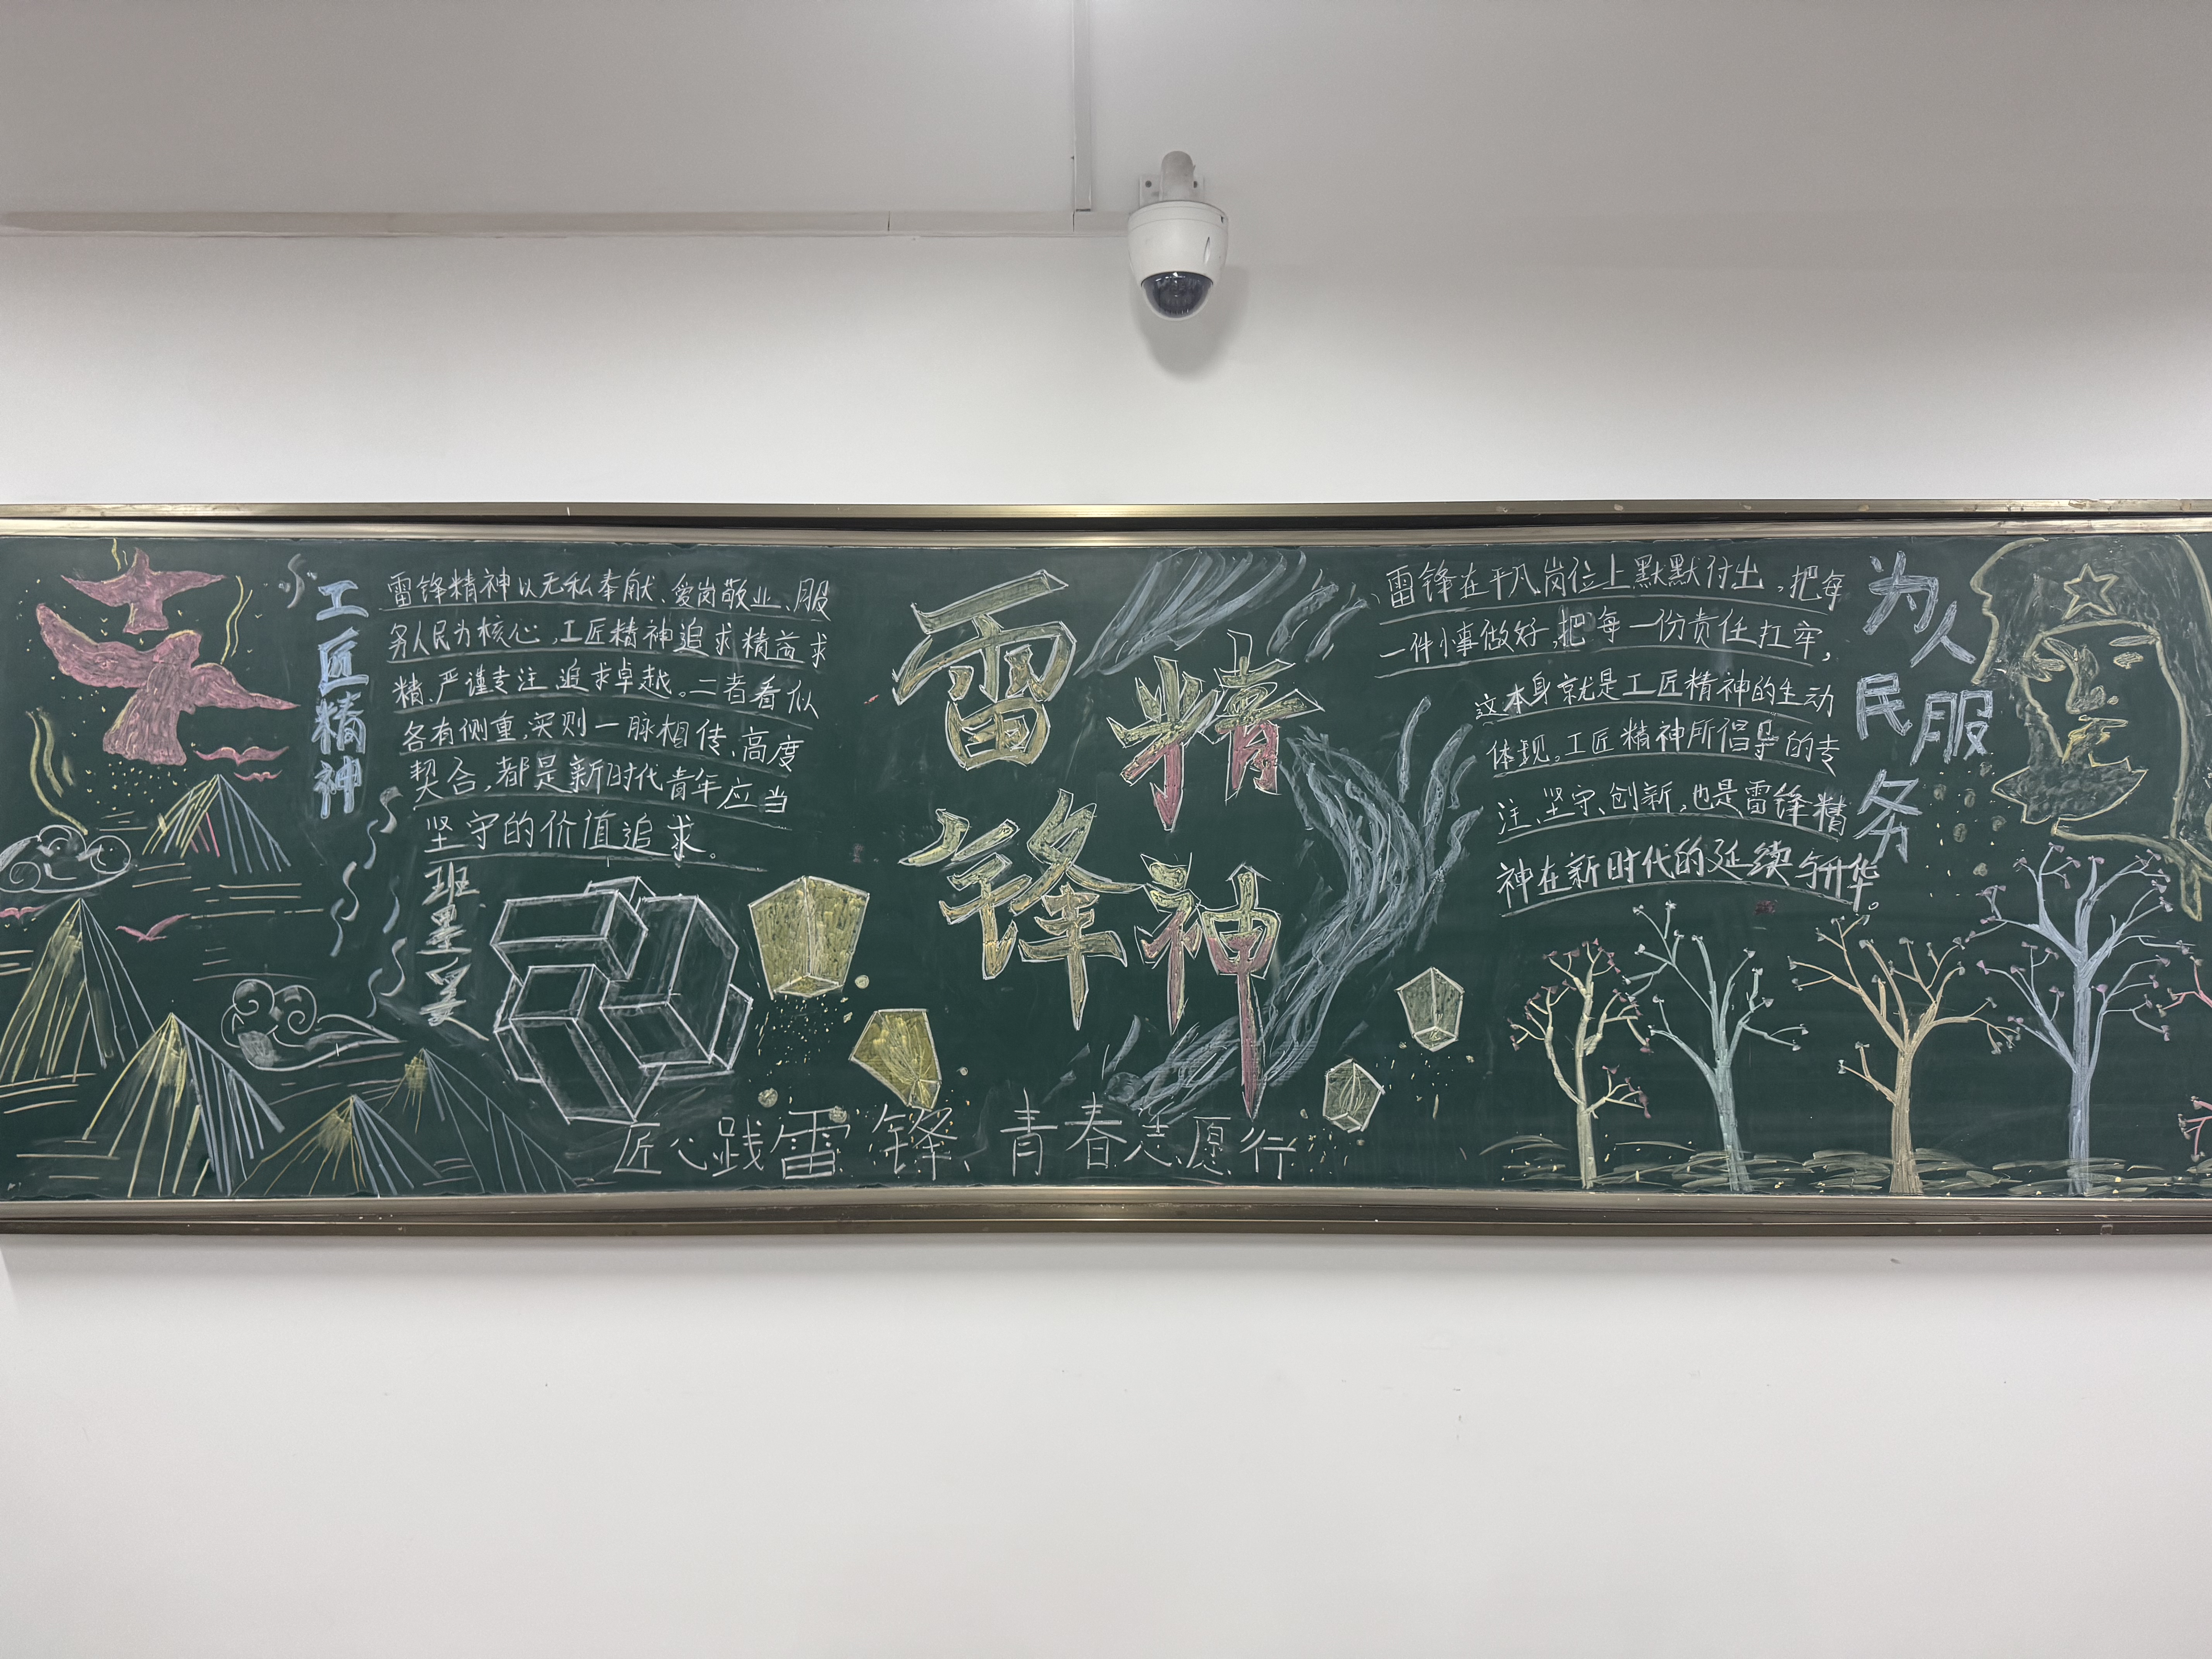 工匠精神
雷锋精神以无私奉献、爱岗敬业、服
务人民为核心,工匠精神追求精益求
精、严谨专注、追求卓越。二者看似
各有侧重,实则一脉相传、高度
契合,都是新时代青年应当
坚守的价值追求。
班墨
雷锋
精神
匠心践雷锋、青春志愿行
雷锋在平凡岗位上默默付出,把每
一件小事做好,把每一份责任扛牢,
这本身就是工匠精神的生动
体现。工匠精神所倡导的专
注、坚守、创新,也是雷锋精
神在新时代的延续与升华。
为人民服务